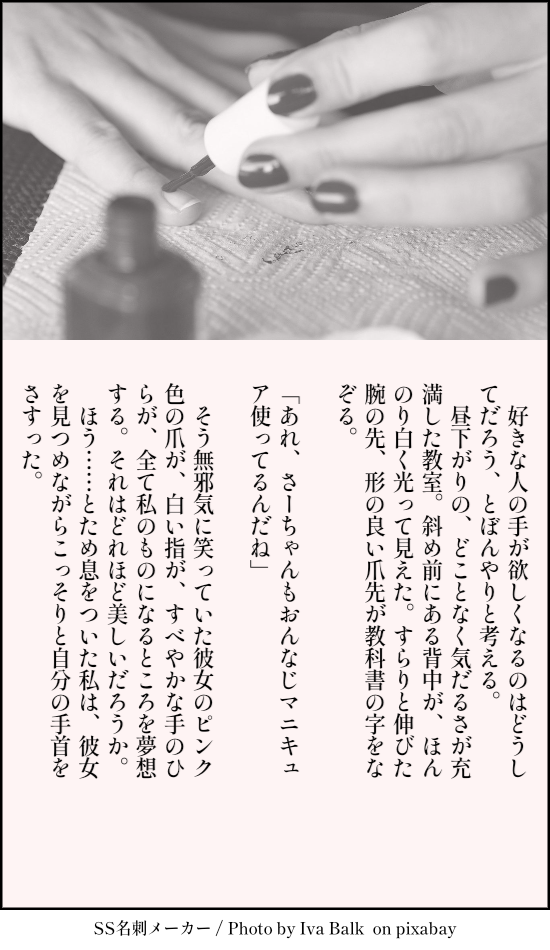 好きな人の手が欲しくなるのはどうし
てだろう、とぼんやりと考える。
昼下がりの、どことなく気だるさが充
満した教室。斜め前にある背中が、ほん
のり白く光って見えた。すらりと伸びた
腕の先、形の良い爪先が教科書の字をな
ぞる。
「あれ、さーちゃんもおんなじマニキュ
ア使ってるんだね」
そう無邪気に笑っていた彼女のピンク
色の爪が、白い指が、すべやかな手のひ
らが、全て私のものになるところを夢想
する。それはどれほど美しいだろうか。
ほう……とため息をついた私は、彼女
を見つめながらこっそりと自分の手首を
さすった。
SS名刺メーカー / Photo by Iva Balk on pixabay